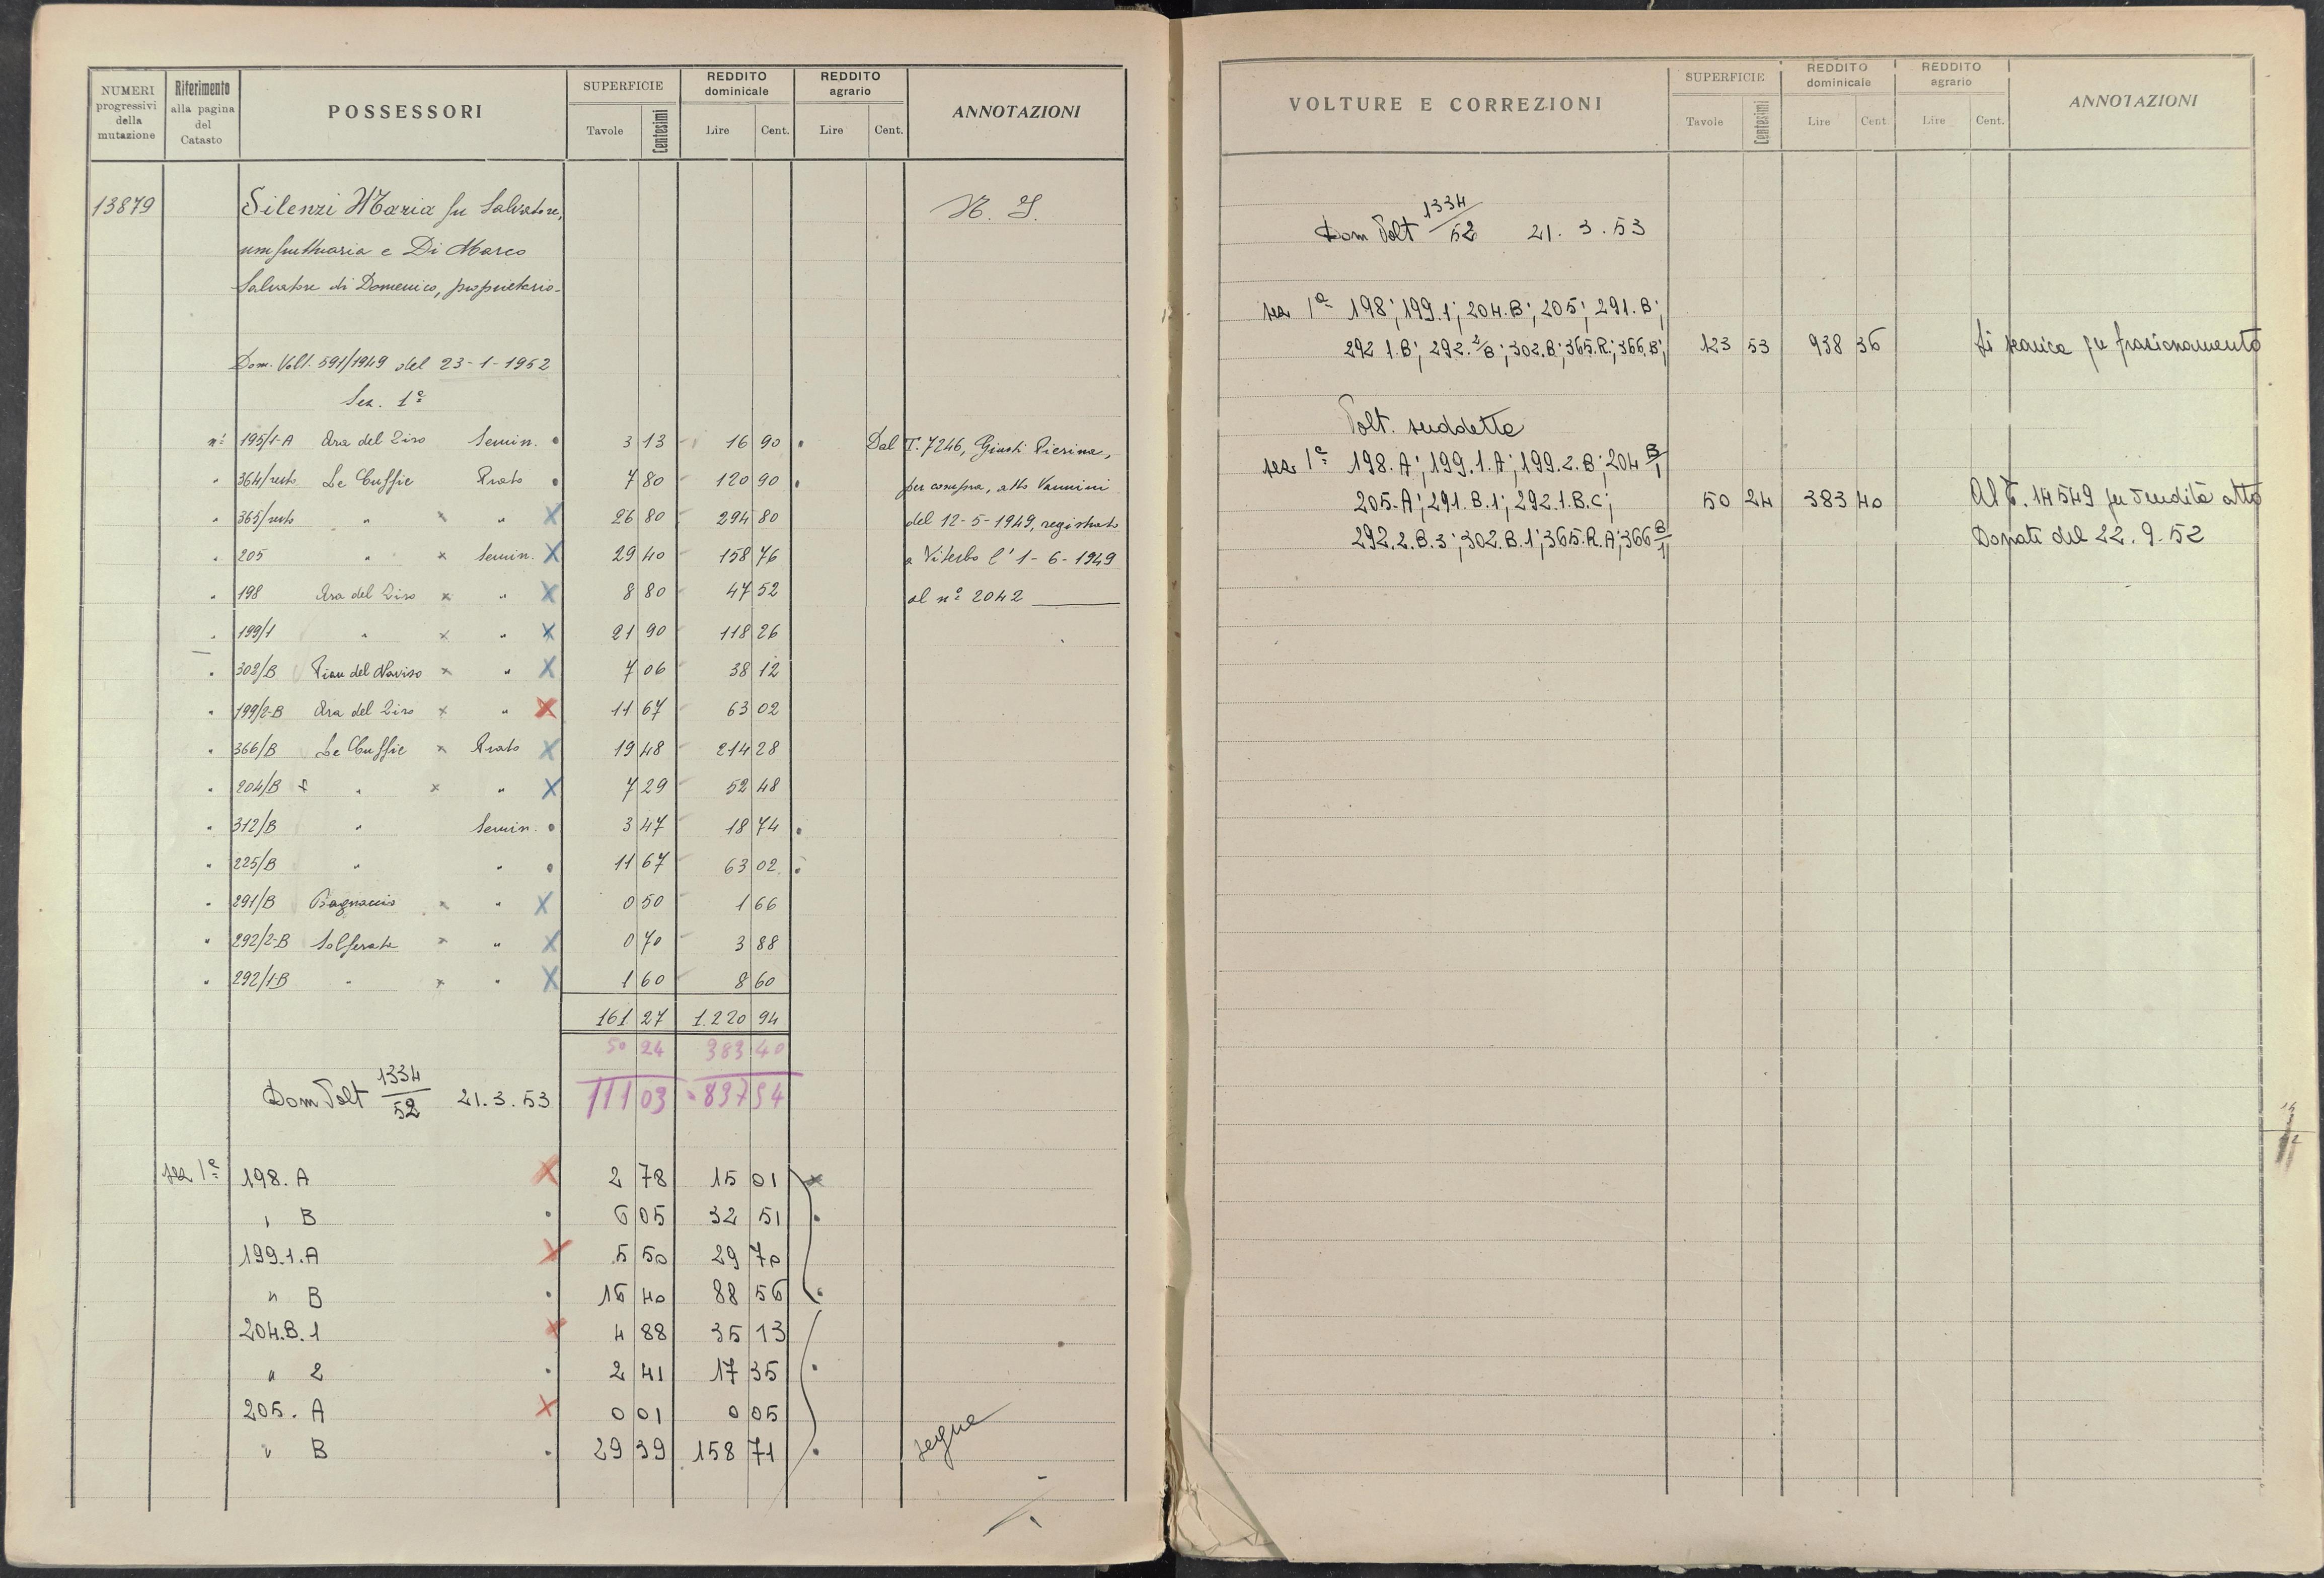 NUMERI progressivi della mutazione | Riferimento alla pagina del Catasto | POSSESSORI | SUPERFICIE Tavole Centesimi | REDDITO dominicale Lire Cent. | REDDITO agrario Lire Cent. | ANNOTAZIONI
13879 Silenzi Maria fu Salvatore, N. I.
usufruttuaria e Di Marco
Salvatore di Domenico, proprietario
Dom. Volt. 591/1949 del 23-1-1952
Sez. 1ª
nº 195/1-A Ara del Ziro Semin. 3 13 16 90 Dal T. 7246, Giusti Pierina,
" 364/resto Le Cuffie Prato 7 80 120 90 per compra, atto Vannini
" 365/resto " x " X 26 80 294 80 del 12-5-1949, registrato
" 205 " x Semin. X 29 40 158 76 a Viterbo l' 1-6-1949
" 198 Ara del Ziro x " X 8 80 47 52 al nº 2042
" 199/1 " x " X 21 90 118 26
" 302/B Pian del Naviso x " X 7 06 38 12
" 199/2-B Ara del Ziro x " X 11 67 63 02
" 366/B Le Cuffie x Prato X 19 48 214 28
" 204/B " x " X 7 29 52 48
" 312/B " Semin. 3 47 18 74
" 225/B " " 11 67 63 02
" 291/B Bagnaccio x " X 0 50 1 66
" 292/2-B Solferate x " X 0 70 3 88
" 292/1-B " x " X 1 60 8 60
161 27 1.220 94
50 24 383 40
Dom Volt 1334/52 21.3.53 111 03 837 54
sez 1ª 198. A X 2 78 15 01 x
" B 6 05 32 51
199.1.A X 5 50 29 70
" B 16 40 88 56
204.B.1 X 4 88 35 13
" 2 2 41 17 35
205. A X 0 01 0 05
" B 29 39 158 71
segue
VOLTURE E CORREZIONI | SUPERFICIE Tavole Centesimi | REDDITO dominicale Lire Cent. | REDDITO agrario Lire Cent. | ANNOTAZIONI
Dom Volt 1334/52 21.3.53
sez 1ª 198; 199.1; 204.B; 205; 291.B;
292 1.B; 292.2/B; 302.B; 365.R.; 366.B; 123 53 938 36 Si scarica per frazionamento
Volt. suddetta
sez 1ª 198.A; 199.1.A; 199.2.B; 204 B/1
205.A; 291.B.1; 292.1.B.C; 50 24 383 40 Al T. 14549 per vendita atto
292.2.B.3; 302.B.1; 365.R.A; 366 B/1 Donati del 22.9.52